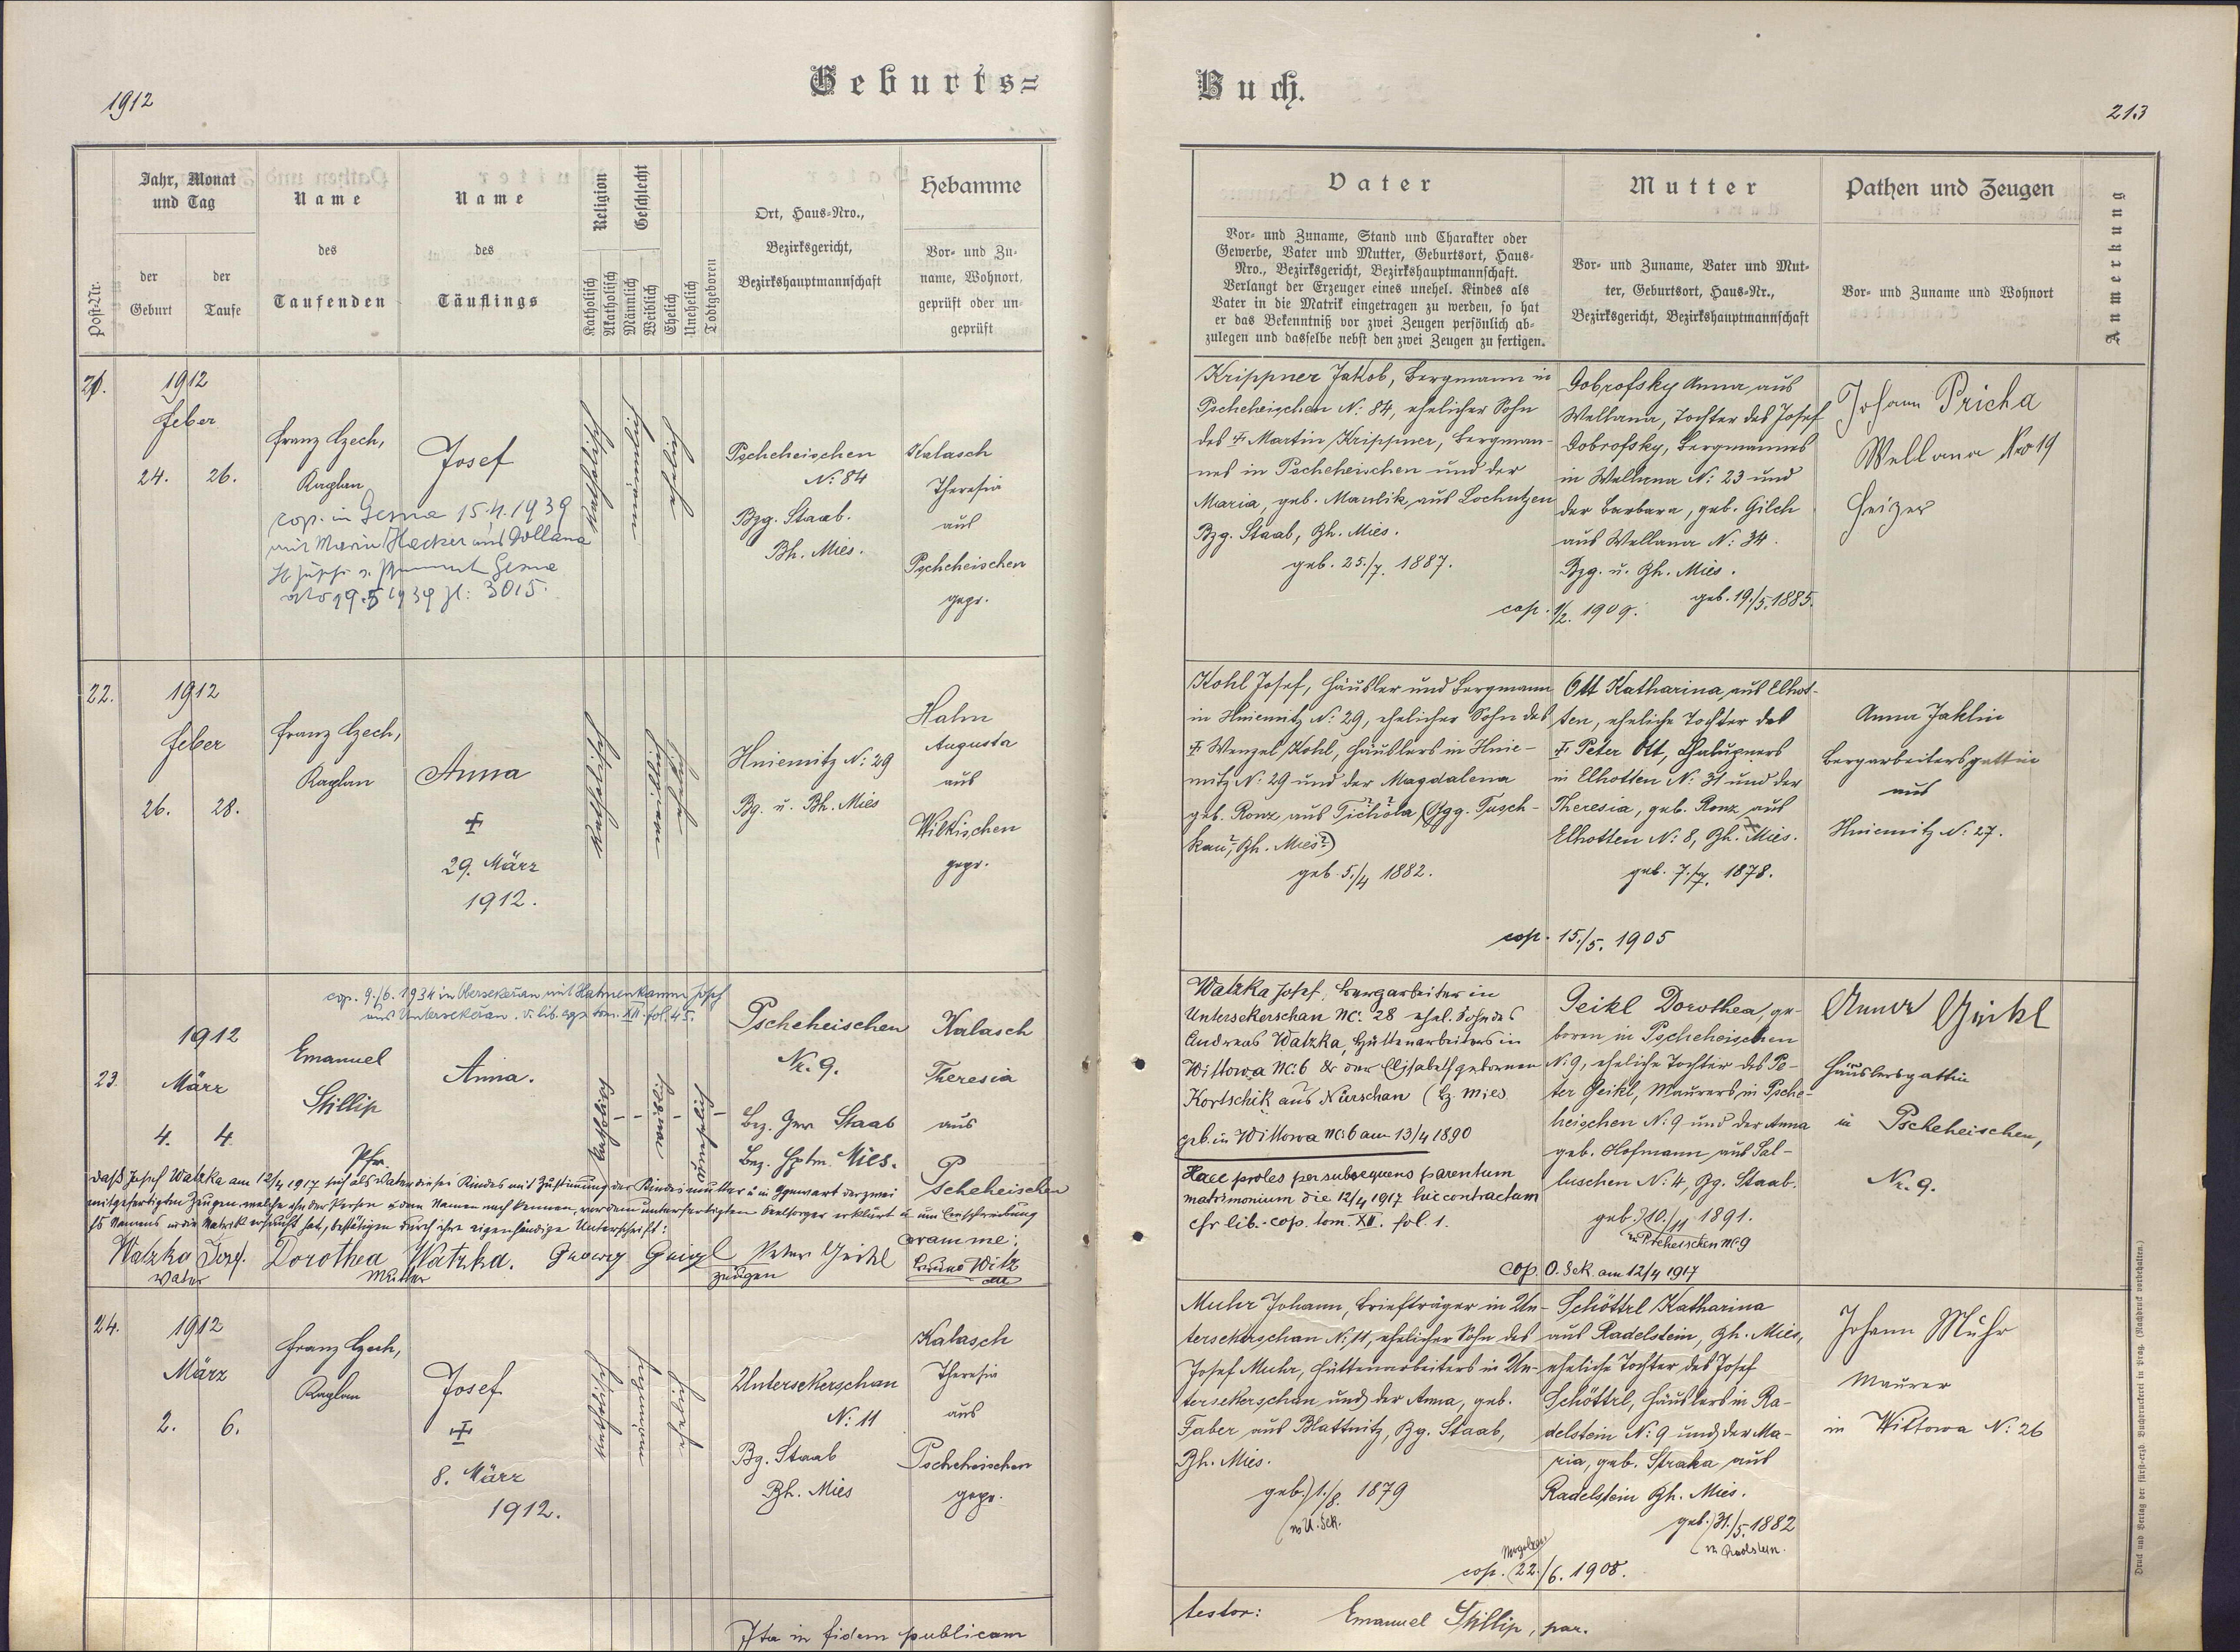 1912
Geburts=
Buch.
213
Post-Nr.
Jahr, Monat
und Tag
der
Geburt
der
Taufe
Name
des
Taufenden
Name
des
Täuflings
Religion
Katholisch
Akatholisch
Geschlecht
Männlich
Weiblich
Ehelich
Unehelich
Todtgeboren
Ort, Haus-Nro.,
Bezirksgericht,
Bezirkshauptmannschaft
Hebamme
Vor- und Zu-
name, Wohnort,
geprüft oder un-
geprüft
Vater
Vor- und Zuname, Stand und Charakter oder
Gewerbe, Vater und Mutter, Geburtsort, Haus-
Nro., Bezirksgericht, Bezirkshauptmannschaft.
Verlangt der Erzeuger eines unehel. Kindes als
Vater in die Matrik eingetragen zu werden, so hat
er das Bekenntniß vor zwei Zeugen persönlich ab-
zulegen und dasselbe nebst den zwei Zeugen zu fertigen.
Mutter
Vor- und Zuname, Vater und Mut-
ter, Geburtsort, Haus-Nr.,
Bezirksgericht, Bezirkshauptmannschaft
Pathen und Zeugen
Vor- und Zuname und Wohnort
Anmerkung
21.
1912
Feber
24. 26.
Franz Czech,
Kaplan
Josef
cop. in 15.4.1939
mit Maria Hacker aus Dollana
19.5 1939 Zl: 3015.
Katholisch
Pscheheischen
N: 84
Bzg. Staab.
Bh. Mies.
Kalasch
Theresia
aus
Pscheheischen
gepr.
Krippner Jakob, Bergmann in
Pscheheischen N: 84, ehelicher Sohn
des † Martin Krippner, Bergman-
nes in Pscheheischen und der
Maria, geb. Maulik aus Lochutzen
Bzg. Staab, Bh. Mies.
geb. 25./7. 1887.
Dobrofsky Anna aus
Wellana, Tochter des Josef
Dobrofsky, Bergmannes
in Wellana N: 23 und
der Barbara, geb. Gilch
aus Wellana N: 34.
Bzg. u. Bh. Mies.
geb. 19./5. 1885.
cop. 1/2. 1909.
Johann Pricha
Wellana Nro 19
Heizer
22.
1912
Feber
26. 28.
Franz Czech,
Kaplan
Anna
†
29. März
1912.
Katholisch
Hniemitz N: 29
Bg. u. Bh. Mies
Hahn
Augusta
aus
Wilkischen
gepr.
Kohl Josef, Häusler und Bergmann
in Hniemitz N: 29, ehelicher Sohn des
† Wenzel Kohl, Häuslers in Hnie-
mitz N: 29 und der Magdalena
geb. Ronz aus Tichola (Bgg. Tusch-
kau, Bh. Mies?)
geb. 5./4 1882.
Ott Katharina, aus Elhot-
ten, eheliche Tochter des
† Peter Ott, Chalupners
in Elhotten N: 31 und der
Theresia, geb. Ronz aus
Elhotten N: 8, Bh. Mies.
geb. 7./7. 1878.
cop. 15./5. 1905
Anna Jaklin
Bergarbeitersgattin
aus
Hniemitz N: 27.
cop. 9./6. 1934 in Obersekeran mit Hahnenkamm Josef
aus Untersekeran. v. lib. cop. tom. XII. fol. 45.
23.
1912
März
4. 4.
Emanuel
Stillip
Pfr.
Anna.
Katholisch
unehelich
Pscheheischen
Nr. 9.
Bez. Ger. Staab
Bez. Hptm. Mies.
Kalasch
Theresia
aus
Pscheheischen
Watzka Josef, Bergarbeiter in
Untersekerschan NC. 28 ehel. Sohn des
Andreas Watzka, Hüttenarbeiters in
Wittowa NC. 6 & der Elisabeth geborenen
Kortschik aus Nürschan (Bz. Mies
geb. in Wittowa NC. 6 am 13/4 1890
Haec proles per subsequens parentum
matrimonium die 12/4 1917 hic contractum
cfr lib. cop. tom. XII. fol. 1.
Geikl Dorothea, ge-
boren in Pscheheischen
N: 9, eheliche Tochter des Pe-
ter Geikl, Maurers in Psche-
heischen N: 9 und der Anna
geb. Hofmann aus Sal-
luschen N: 4, Bg. Staab.
geb. 10./11 1891.
in Pscheheischen NC. 9
cop. O. Sek. am 12/4 1917
Anna Geikl
Häuslersgattin
in Pscheheischen,
Nr. 9.
daß Josef Watzka am 12/4 1917 sich als Vater dieses Kindes mit Zustimmung der Kindesmutter u. in Gegenwart der zwei
mitgefertigten Zeugen, welche ihn der Person u. dem Namen nach kennen, vor dem unterfertigten Seelsorger erklärt u. um Einschreibung
seines Namens in die Matrik ersucht hat, bestätigen durch ihre eigenhändige Unterschrift:
Watzka Josef.
Vater
Dorothea Watzka.
Mutter
Georg Geigl Peter Geikl
Zeugen
coram me:
Bruno Witz
24.
1912
März
2. 6.
Franz Czech,
Kaplan
Josef
†
8. März
1912.
Katholisch
Untersekerschan
N: 11
Bg. Staab
Bh. Mies
Kalasch
Theresia
aus
Pscheheischen
gepr.
Muhr Johann, Briefträger in Un-
tersekerschan N: 11, ehelicher Sohn des
Josef Muhr, Hüttenarbeiters in Un-
tersekerschan und der Anna, geb.
Faber aus Blattnitz, Bg. Staab,
Bh. Mies.
geb. 1./8. 1879
in U. Sek.
Schöttrl Katharina
aus Radelstein, Bh. Mies,
eheliche Tochter des Josef
Schöttrl, Häuslers in Ra-
delstein N: 9 und der Ma-
ria, geb. Straka aus
Radelstein Bh. Mies.
geb. 31./5. 1882
in Radlstein.
cop. 22./6. 1908.
Johann Muhr
Maurer
in Wittowa N: 26
Ita in fidem publicam
testor: Emanuel Stillip, par.
Druck und Verlag der fürst-erzb. Buchdruckerei in Prag. (Nachdruck vorbehalten.)